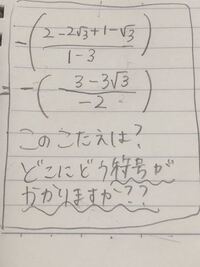 -(2-2√3+1-√3 / 1-3)
= -(3-3√3 / -2)
このこたえは?
どこにどう符号が
かかりますか??